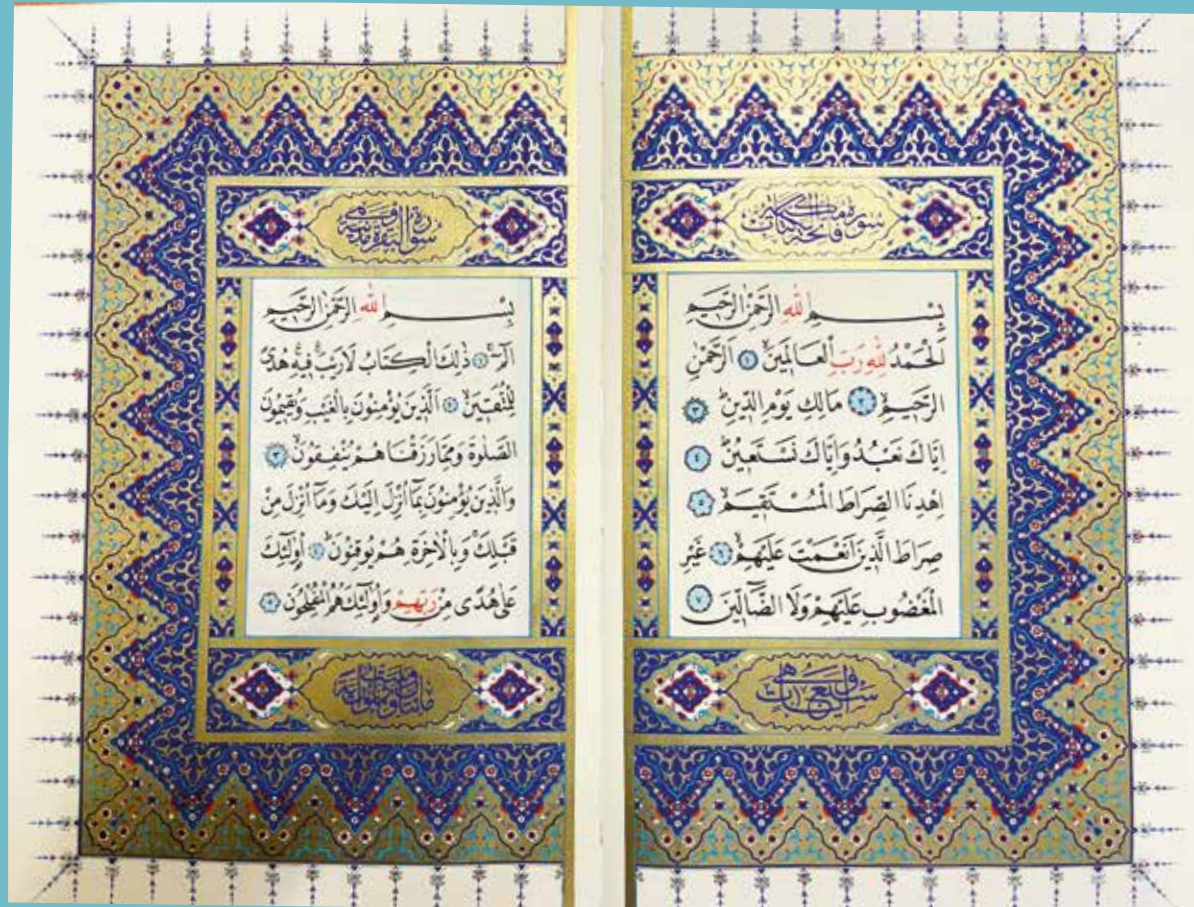 سورة فاتحة الكتاب مكية
بِسْمِ اللّٰهِ الرَّحْمٰنِ الرَّحِيمِ
اَلْحَمْدُ لِلّٰهِ رَبِّ الْعَالَمِينَۙ ١ اَلرَّحْمٰنِ
الرَّحِيمِۙ ٢ مَالِكِ يَوْمِ الدِّينِۜ ٣
اِيَّاكَ نَعْبُدُ وَاِيَّاكَ نَسْتَعِينُۜ ٤
اِهْدِنَا الصِّرَاطَ الْمُسْتَقِيمَۙ ٥
صِرَاطَ الَّذِينَ اَنْعَمْتَ عَلَيْهِمْۙ ٦ غَيْرِ
الْمَغْضُوبِ عَلَيْهِمْ وَلَا الضَّٓالِّينَ ٧
وهي سبع آيات
سورة البقرة مدنية وهي
بِسْمِ اللّٰهِ الرَّحْمٰنِ الرَّحِيمِ
الٓمٓۚ ١ ذٰلِكَ الْكِتَابُ لَا رَيْبَۚۛ فِيهِۚۛ هُدًى
لِلْمُتَّقِينَۙ ٢ اَلَّذِينَ يُؤْمِنُونَ بِالْغَيْبِ وَيُقِيمُونَ
الصَّلٰوةَ وَمِمَّا رَزَقْنَاهُمْ يُنْفِقُونَۙ ٣
وَالَّذِينَ يُؤْمِنُونَ بِمَٓا اُنْزِلَ اِلَيْكَ وَمَٓا اُنْزِلَ مِنْ
قَبْلِكَۚ وَبِالْاٰخِرَةِ هُمْ يُوقِنُونَۜ ٤ اُو۬لٰٓئِكَ
عَلٰى هُدًى مِنْ رَبِّهِمْ وَاُو۬لٰٓئِكَ هُمُ الْمُفْلِحُونَ ٥
مائتان